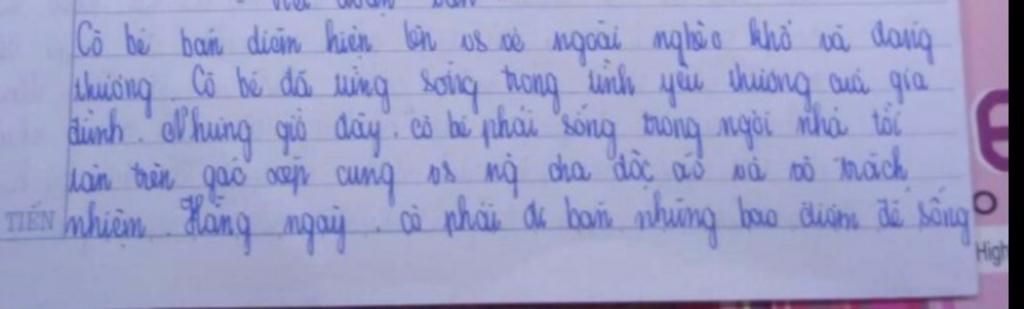 Cô bé bán diêm hiện lên vs vẻ ngoài nghèo khổ và đáng
thương. Cô bé đã từng sống trong tình yêu thương của gia
đình. Nhưng giờ đây, cô bé phải sống trong ngôi nhà tồi
tàn trên gác xép cùng vs ng cha độc ác và vô trách
TIẾN
nhiệm. Hằng ngày, cô phải đi bán những bao diêm để sống
High